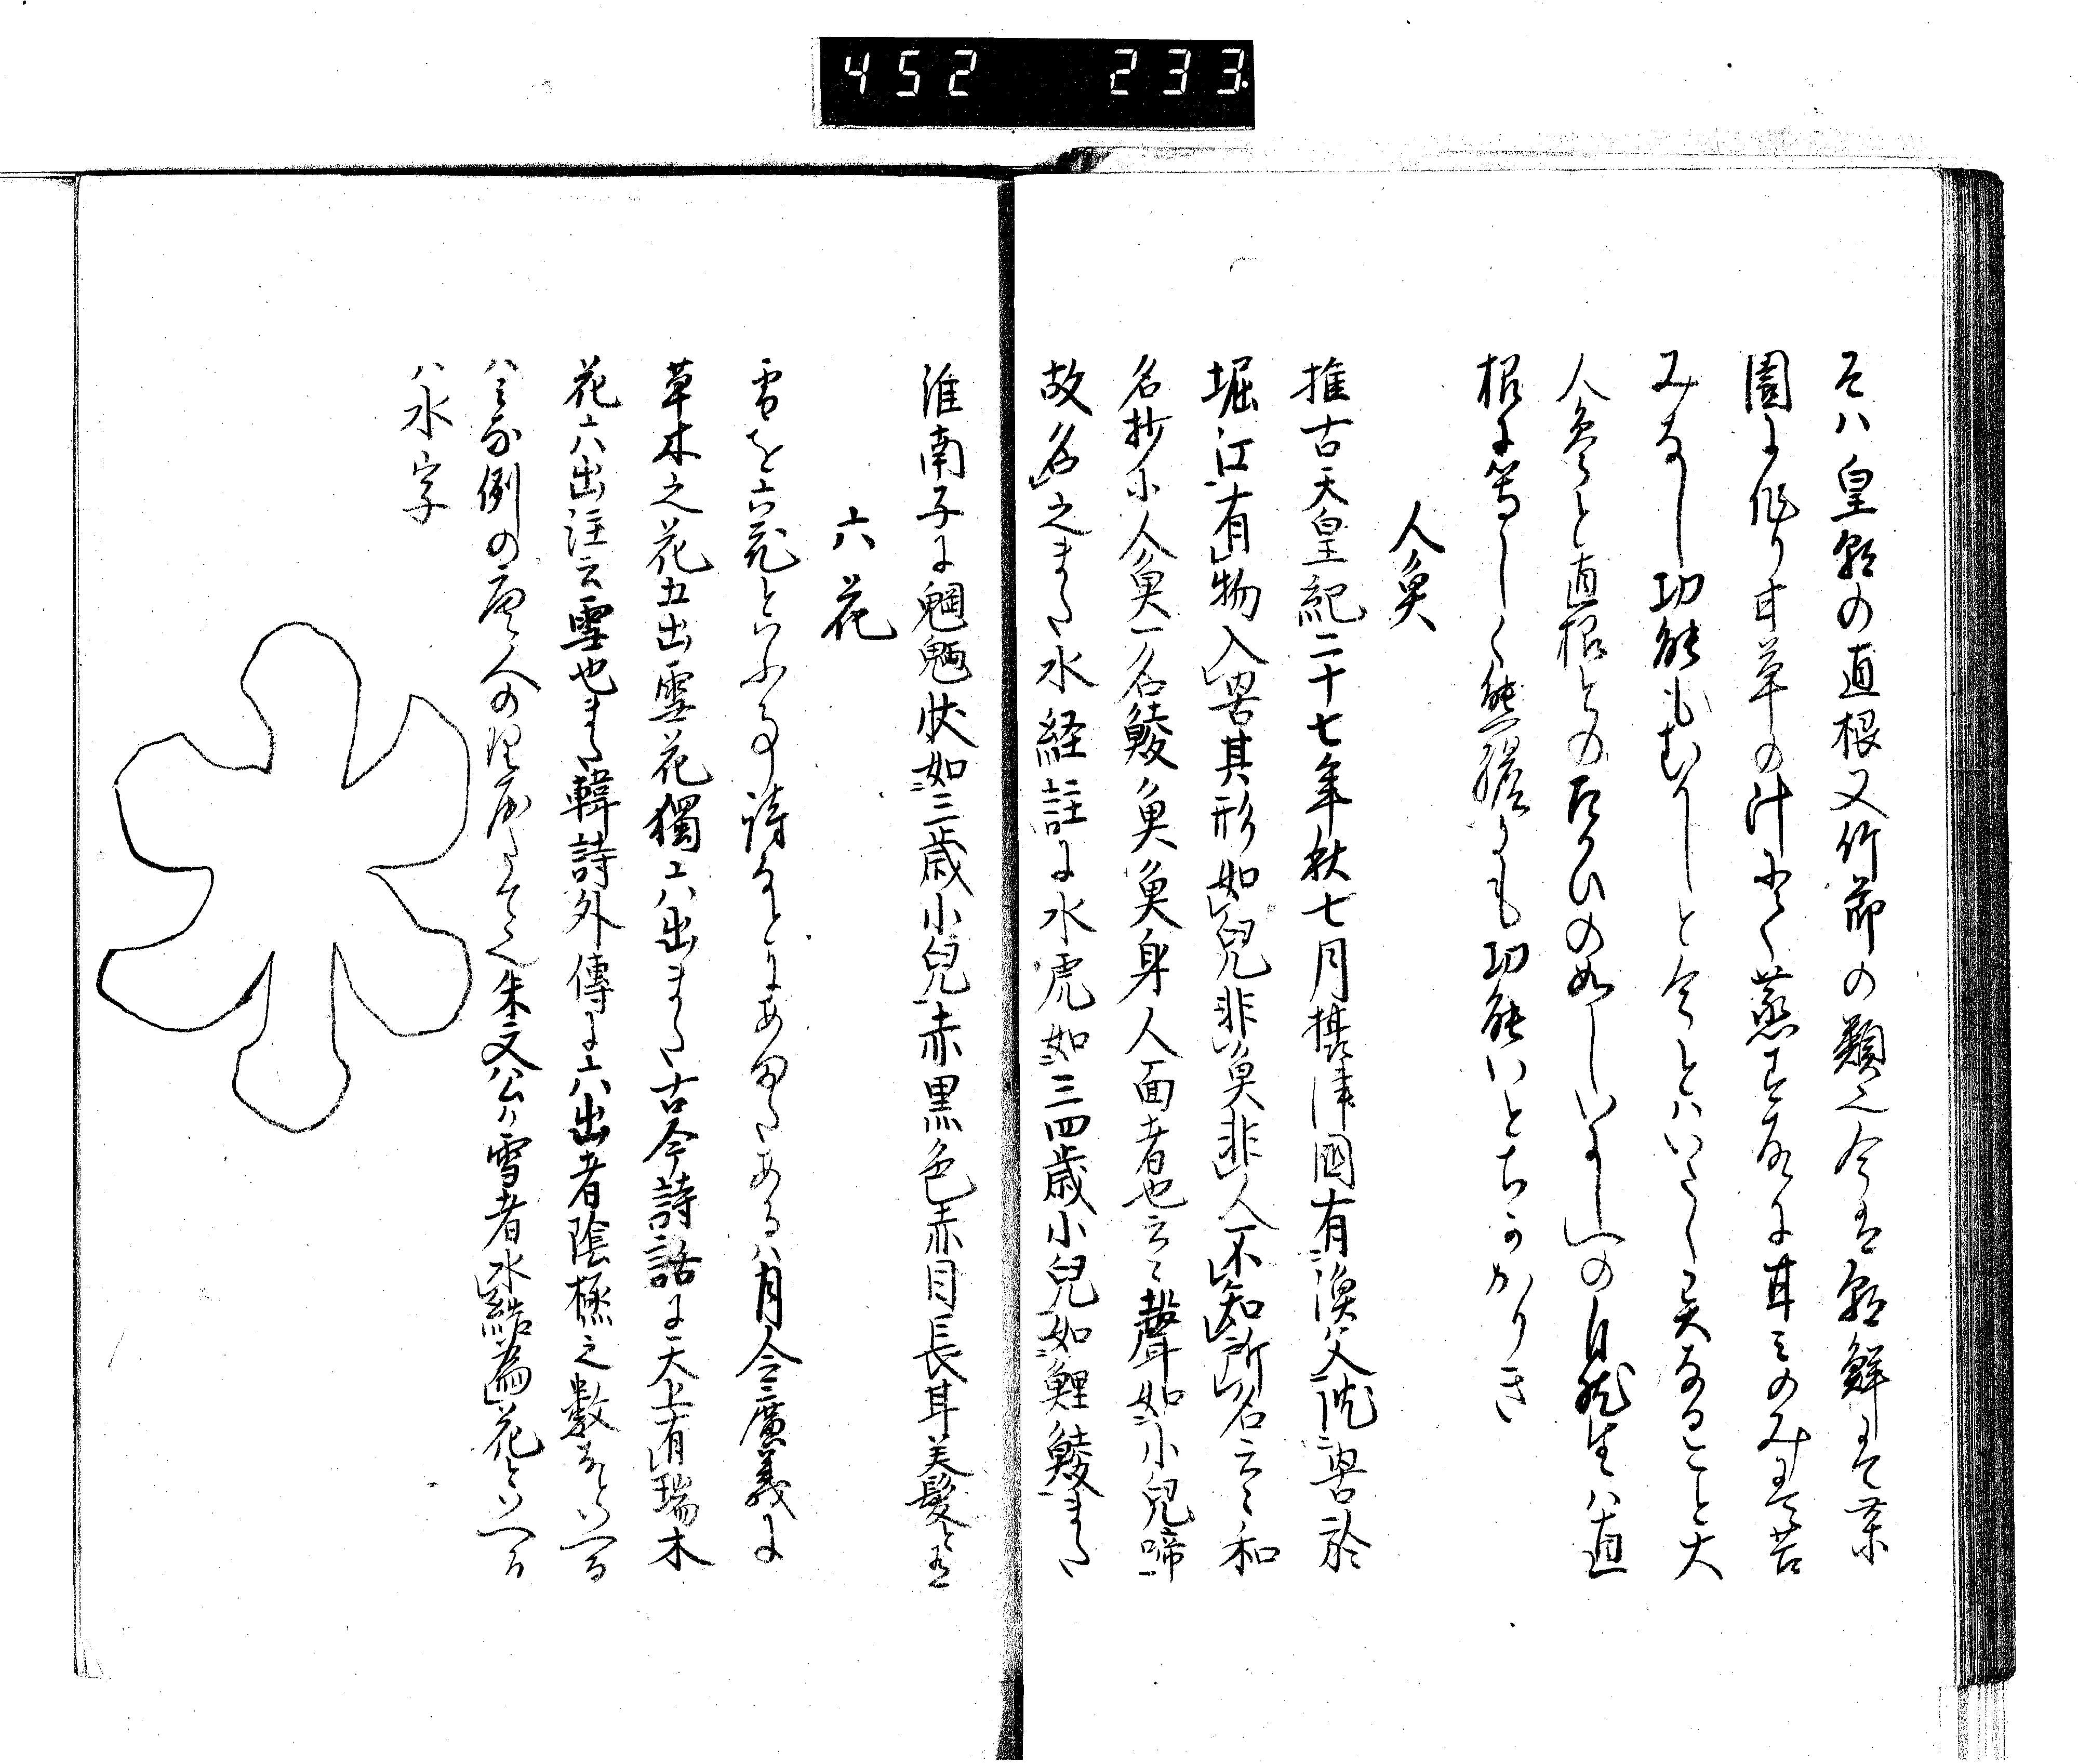 452 233
そは皇朝の直根又竹節の類也今は朝鮮にて薬
園に作り甘草の汁にて蒸す故に甘みのみにて苦
みなし功能もむかしと今とはいたく異なること大
人参と直根とのたかひの如しいにしへの自然生は直
根に等しく熊膽にも功能いとちかかりき
人魚
推古天皇紀二十七年秋七月攝津國有漁父沈罟於
堀江有物入罟其形如兒非魚非人不知所名云々和
名抄に人魚一名鯪魚魚身人面者也云々聲如小兒啼
故名之また水経註に水虎如三四歳小兒如鯉鯪また
淮南子に魍魎状如三歳小兒赤黒色赤目長耳美髪と有
六花
雪を六花といふ事詩なとにあまたあるは月令廣義に
草木之花五出雪花獨六出また古今詩話に天上有瑞木
花六出注云雪也また韓詩外傳に六出者陰極之数なといへる
はみな例の唐人の理屈たて也朱文公か雪者水結為花といへる
は水字